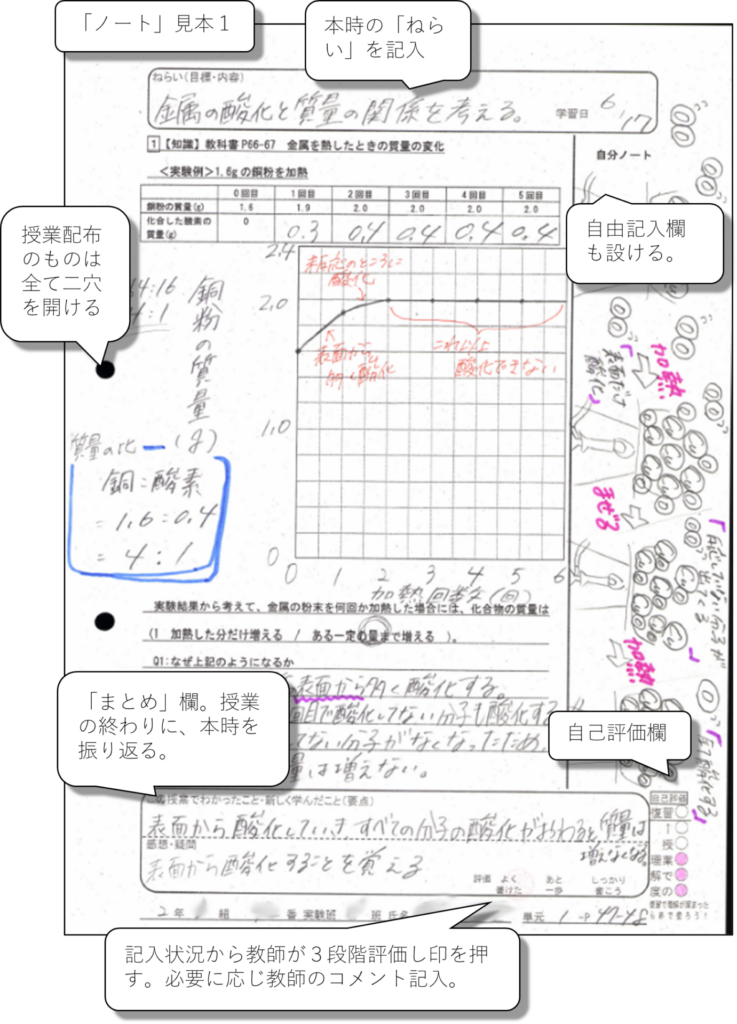 「ノート」見本１
本時の「ねら
い」を記入
ねらい(目標・内容)
金属の酸化と質量の関係を考える。
学習日 6/17
1 【知識】教科書P66-67　金属を熱したときの質量の変化
＜実験例＞1.6gの銅粉を加熱
0回目 1回目 2回目 3回目 4回目 5回目
銅粉の質量(g) 1.6 1.9 2.0 2.0 2.0 2.0
化合した酸素の
質量(g) 0 0.3 0.4 0.4 0.4 0.4
自分ノート
自由記入欄
も設ける。
授業配布
のものは
全て二穴
を開ける
2.4
2.0
1.0
0
銅粉の質量(g)
未反応のところに
酸化
表面が
多く酸化
これ以上
酸化できない
0 1 2 3 4 5 6
加熱回数(回)
質量の比
銅：酸素
=1.6：0.4
=4：1
加熱
表面だけ
酸化
まぜる
反応していない分子が
出てくる
加熱
実験結果から考えて、金属の粉末を何回か加熱した場合には、化合物の質量は
(1　加熱した分だけ増える　/　ある一定の量まで増える　)。
Q1:なぜ上記のようになるか
表面から多く酸化する。
回目で酸化してない分子も酸化する
てない分子がなくなったため、
量は増えない。
「まとめ」欄。授業
の終わりに、本時を
振り返る。
自己評価欄
授業でわかったこと・新しく学んだこと(要点)
表面から酸化していき、すべての分子の酸化がおわると、質量は
増えなくなる。
感想・疑問
表面から酸化することを覚える
評価 よく書けた あと一歩 しっかり書こう
自己評価
復習
授
2年 組 番 実験班 班 氏名 単元 1 -P 47-48
記入状況から教師が３段階評価し印を押
す。必要に応じ教師のコメント記入。